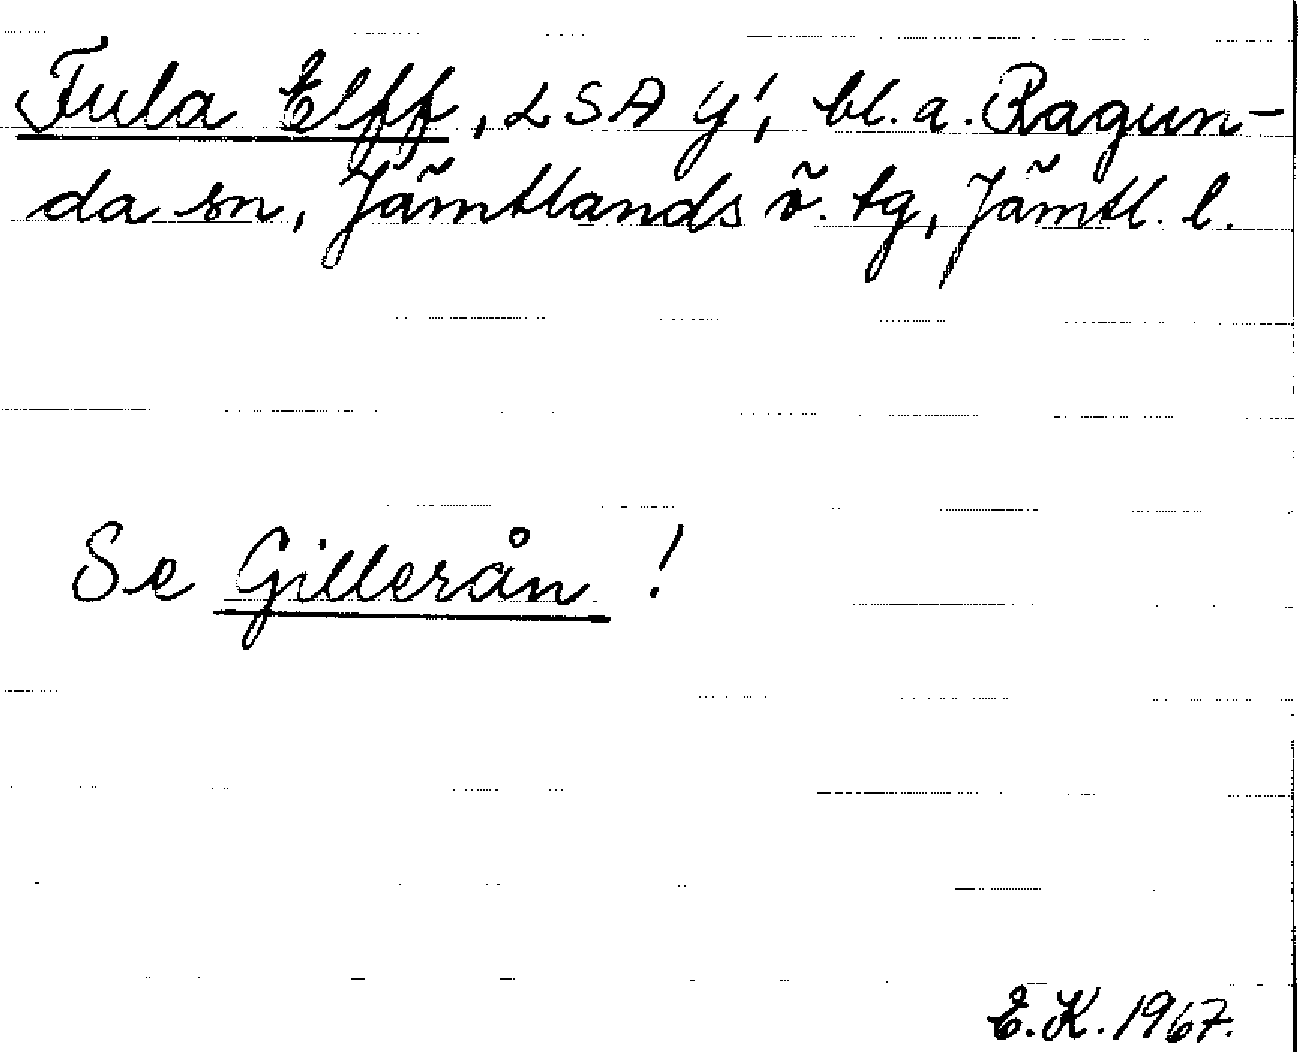 Fula Elff, LSA Y¹, bl. a. Ragun-
da sn, Jämtlands ö. tg, Jämtl. l.
Se Gillerån !
E.K. 1967.